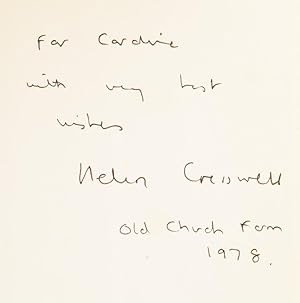 For Caroline
with very best
wishes
Helen Cresswell
Old Church Farm
1978.